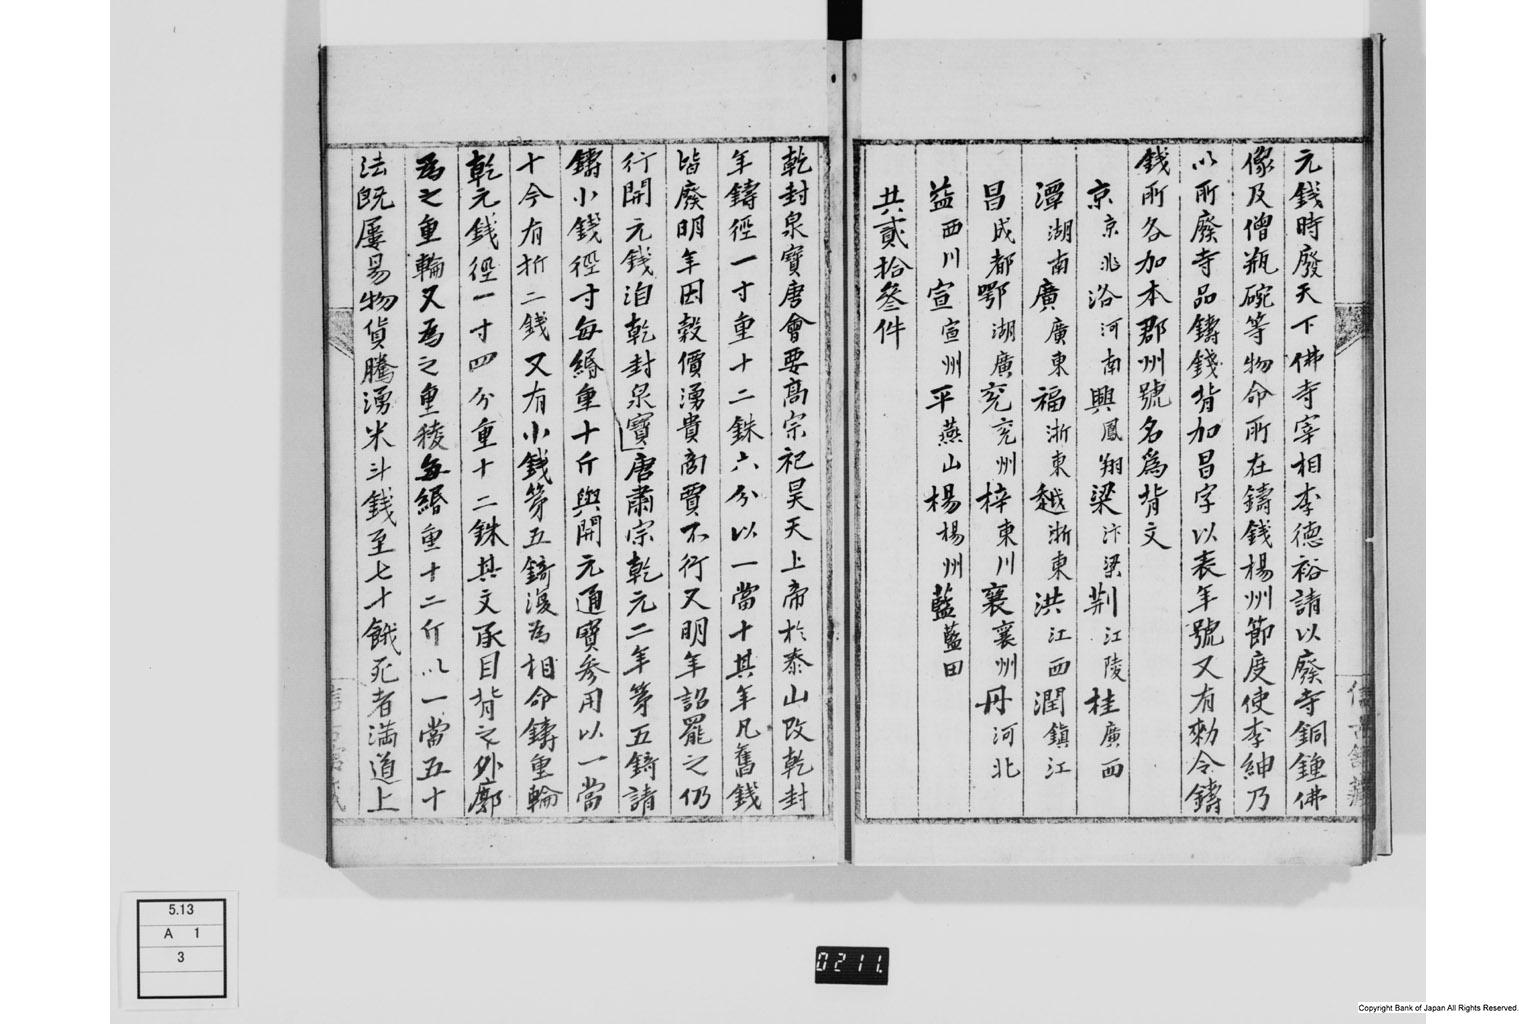 元錢時廢天下佛寺宰相李德裕請以廢寺銅鍾佛
像及僧瓶碗等物命所在鑄錢楊州節度使李紳乃
以所廢寺品鑄錢背加昌字以表年號又有勑令鑄
錢所各加本郡州號名爲背文
京京兆洛河南興鳳翔梁汴梁荆江陵桂廣西
潭湖南廣廣東福浙東越浙東洪江西潤鎮江
昌成都鄂湖廣兖兖州梓東川襄襄州丹河北
益西川宣宣州平燕山楊楊州藍藍田
共貳拾叄件
乾封泉寶唐會要髙宗祀昊天上帝於泰山改乾封
年鑄徑一寸重十二銖六分以一當十其年凡舊錢
皆廢明年因穀價湧貴商賈不行又明年詔罷之仍
行開元錢洎乾封泉寶唐肅宗乾元二年第五錡請
鑄小錢徑寸每緡重十斤與開元通寶参用以一當
十今有折二錢又有小錢第五錡復為相命鑄重輪
乾元錢徑一寸四分重十二銖其文承目背之外廓
為之重輪又為之重稜每緡重十二斤以一當五十
法旣屢易物貨騰湧米斗錢至七十餓死者滿道上
5.13
A 1
3
0211.
Copyright Bank of Japan All Rights Reserved.